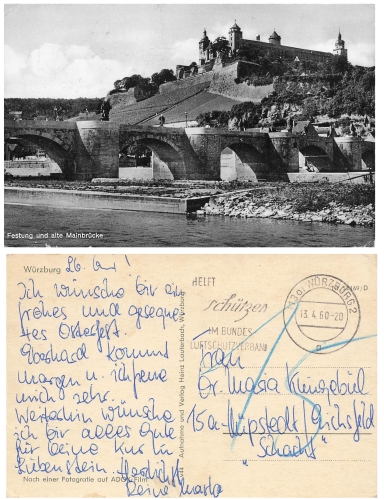 Festung und alte Mainbrücke
Würzburg
Ich wünsche Dir ein
frohes und gesegne-
tes Osterfest.
Eberhard kommt
morgen u. ich freue
mich sehr.
Weiterhin wünsche
ich Dir alles Gute
für Deine Kur in
Liebenstein. Herzlichst
Deine Marta
Nach einer Fotografie auf ADOX Film
Aufnahme und Verlag Heinz Lauterbach, Würzburg
HELFT
schützen
IM BUNDES
LUFTSCHUTZVERBAND
(13a) WÜRZBURG 2
13.4.60-20
a
Frau
Dr. Maria
15a
Eichsfeld
"Schacht"